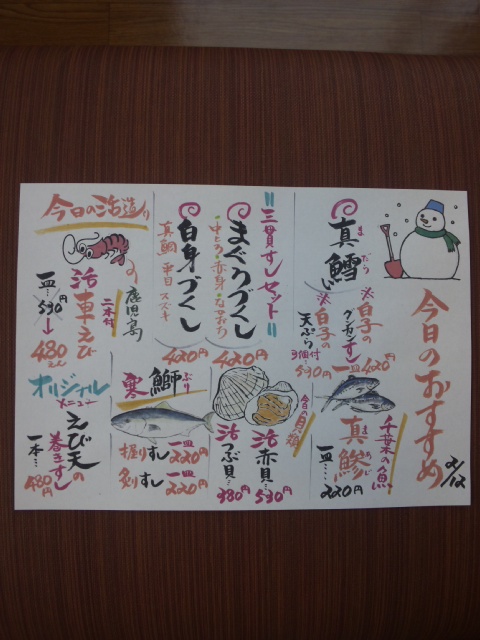 今日のおすすめ
2/12
真鱈
まだら
白子の
グンカンすし
一皿420円
白子の
天ぷら
3個付
530円
千葉の魚
真鯵
あじ
一皿…
220円
三貫すしセット
まぐろづくし
中とろ・赤身・ねぎとろ
420円
白身づくし
真鯛 平目 スズキ
420円
今日の貝類
活赤貝…
530円
活つぶ貝…
380円
寒鰤
ぶり
握りすし
一皿220円
炙りすし
一皿220円
今日の活造り
鹿児島の
活車えび
二本付
一皿…530円
↓
480円
オリジナル
メニュー
えび天の
巻きずし
一本…
480円